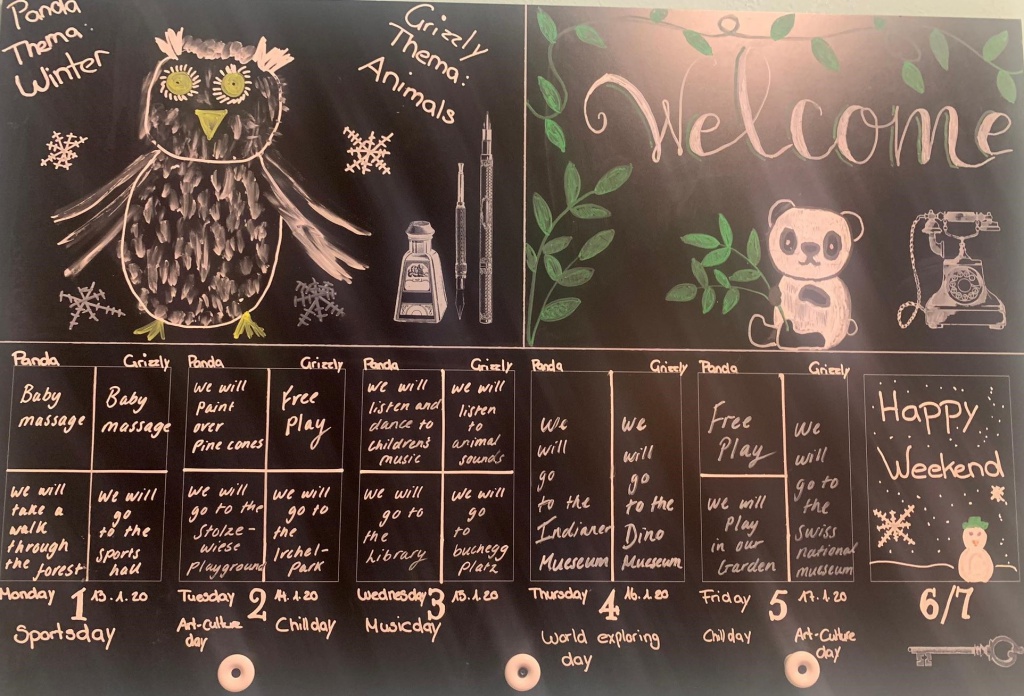 Panda
Thema:
Winter
Grizzly
Thema:
Animals
Welcome
Panda
Grizzly
Baby
massage
Baby
massage
we will
take a
walk
through
the forest
we will
go
to the
sports
hall
Monday 1 13.1.20
Sportsday
Panda
Grizzly
we will
Paint
over
Pine cones
free
Play
we will
go to the
Stolze-
wiese
Playground
we will
go to
the
Irchel-
Park
Tuesday 2 14.1.20
Art-Culture
day
Chillday
Panda
Grizzly
we will
listen and
dance to
children's
music
we will
listen
to
animal
sounds
we will
go to
the
Library
we will
go
to
buchegg
Platz
Wednesday 3 15.1.20
Musicday
Panda
Grizzly
We
will
go
to the
Indianer
Mueseum
we
will
go
to the
Dino
Mueseum
Thursday 4 16.1.20
World exploring
day
Panda
Grizzly
Free
Play
we will
Play
in our
Garden
we
will
go to
the
Swiss
national
mueseum
Friday 5 17.1.20
Chillday
Art-Culture
day
Happy
Weekend
6/7